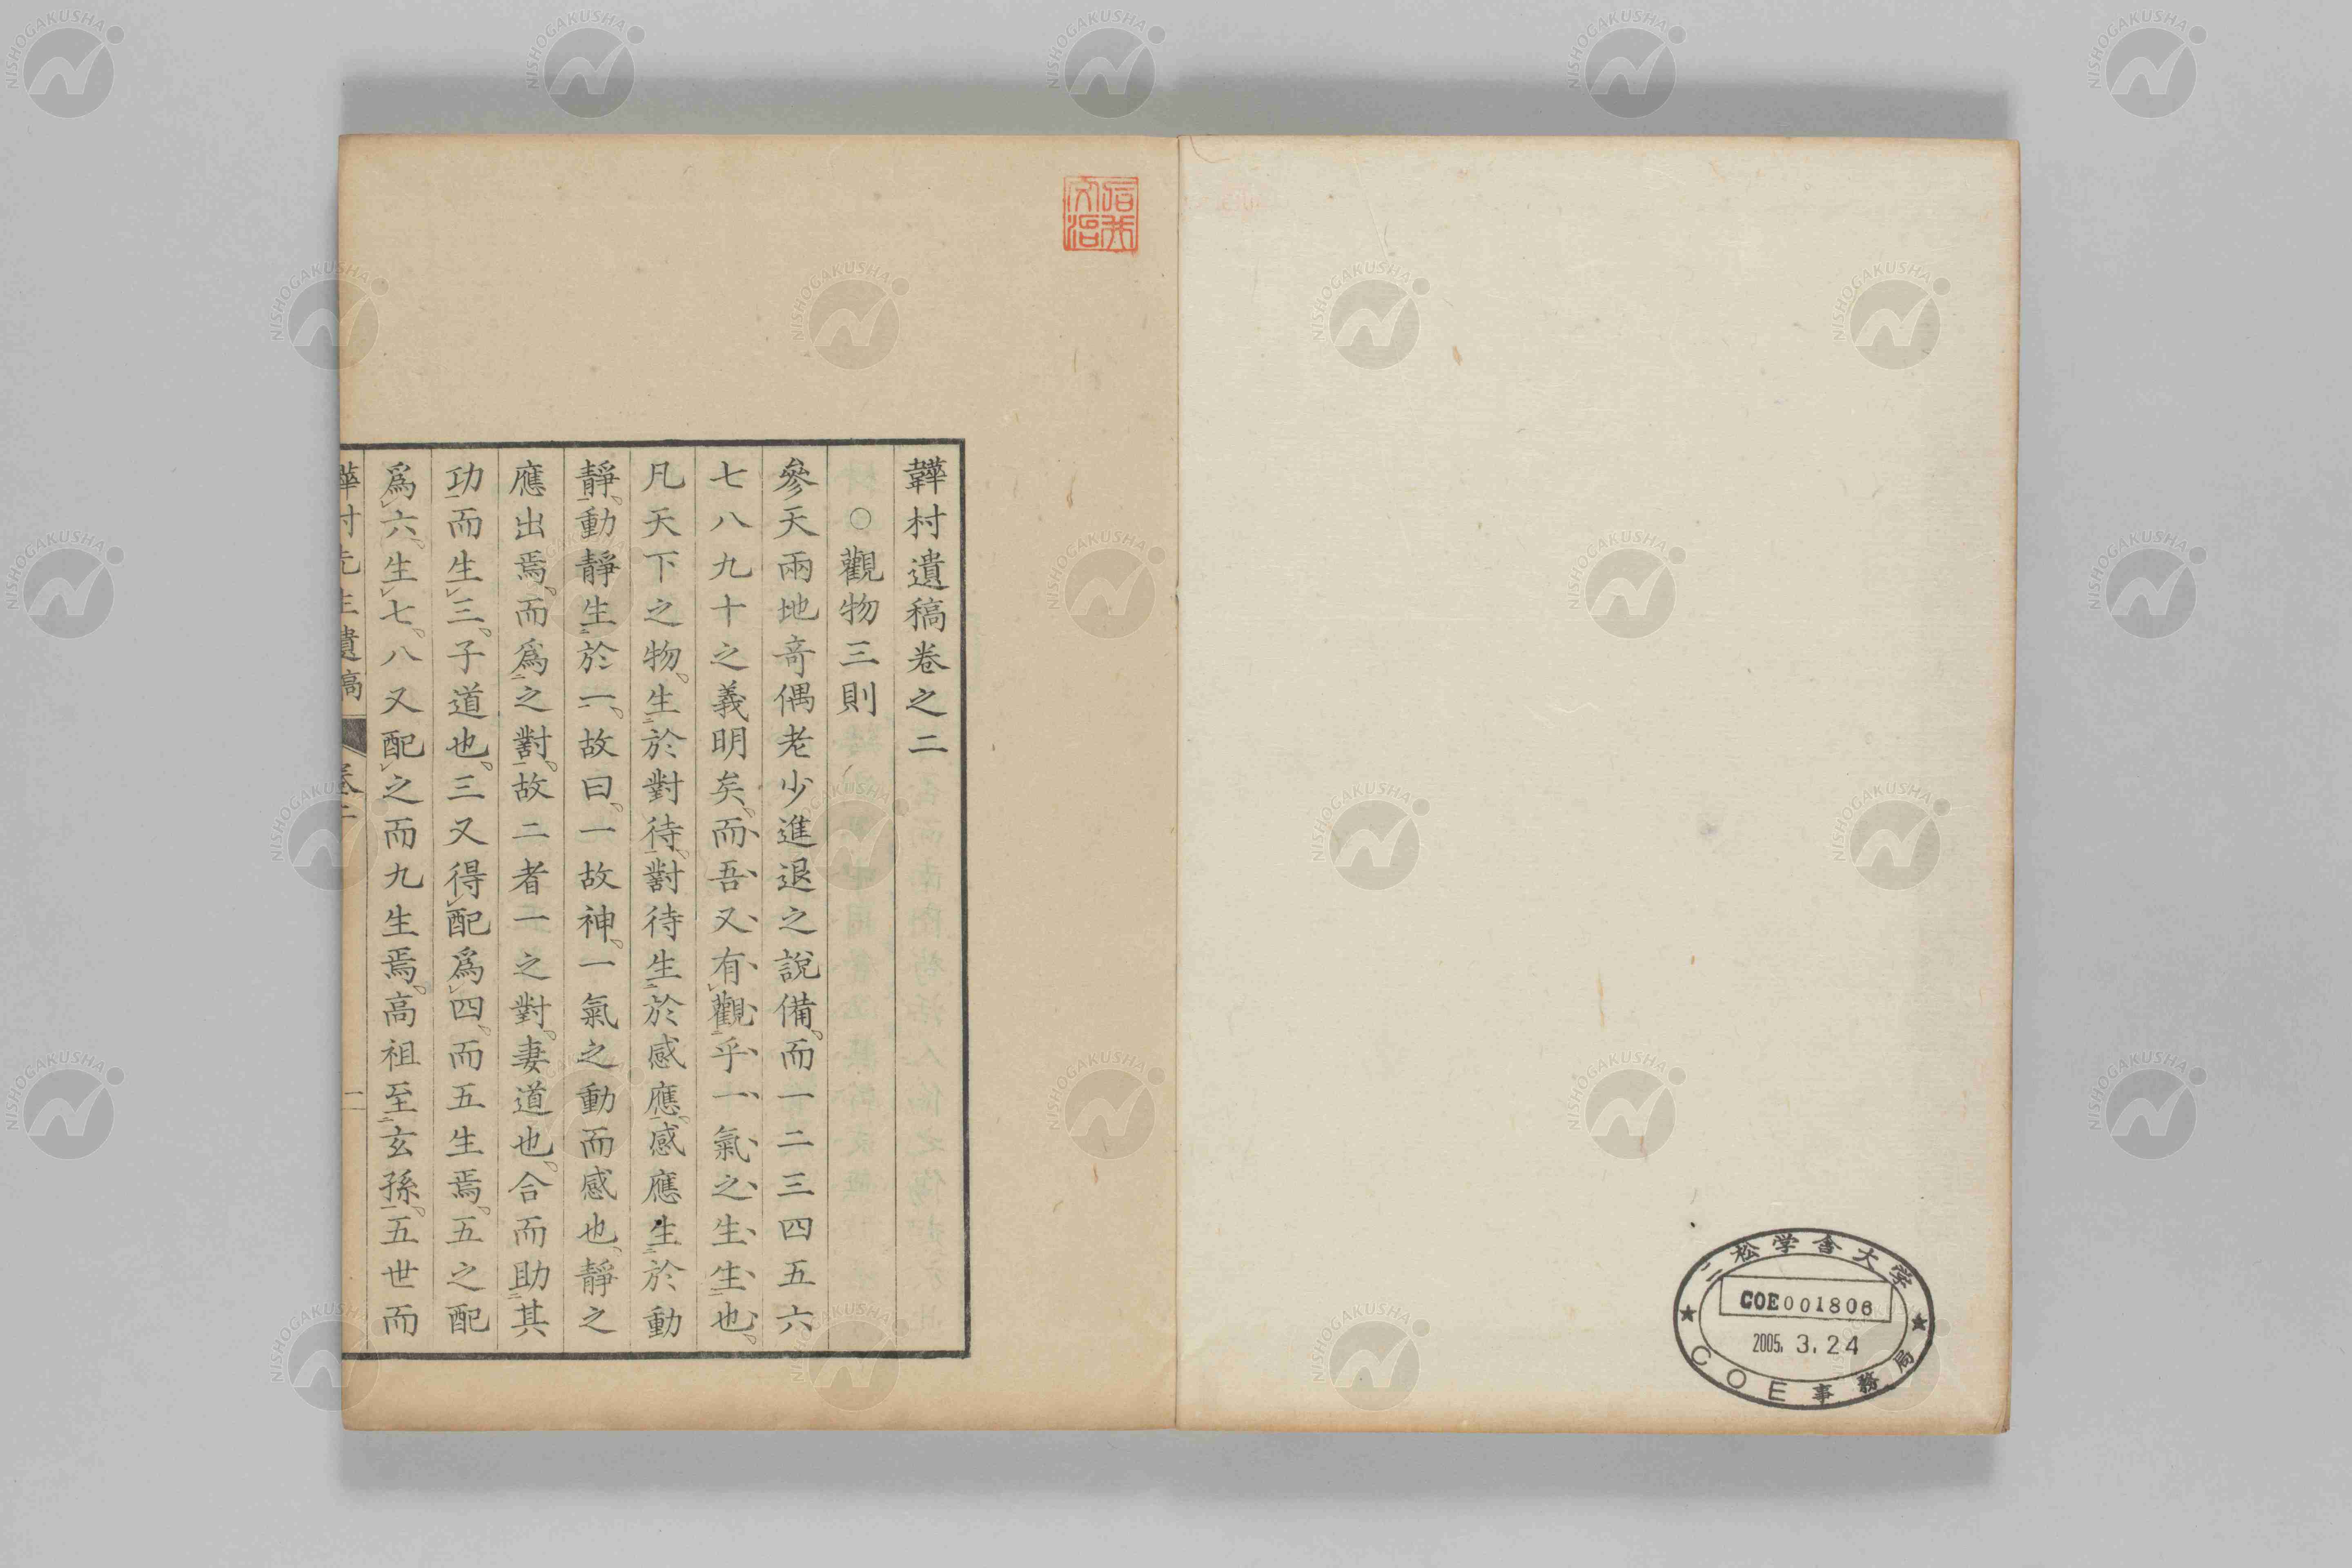 韡村遺稿卷之二
○觀物三則
參天兩地竒偶老少進退之說備。而一二三四五六
七八九十之義明矣。而吾又有觀乎一氣之生生也。
凡天下之物。生於對待。對待生於感應。感應生於動
靜。動靜生於一。故曰。一故神。一氣之動而感也。靜之
應出焉。而爲之對。故二者一之對。妻道也。合而助其
功而生三。子道也。三又得配爲四。而五生焉。五之配
爲六。生七。八又配之而九生焉。高祖至玄孫。五世而
韡村先生遺稿 卷二 一
二松学舎大学
COE001806
2005. 3. 24
COE事務局
NISHOGAKUSHA